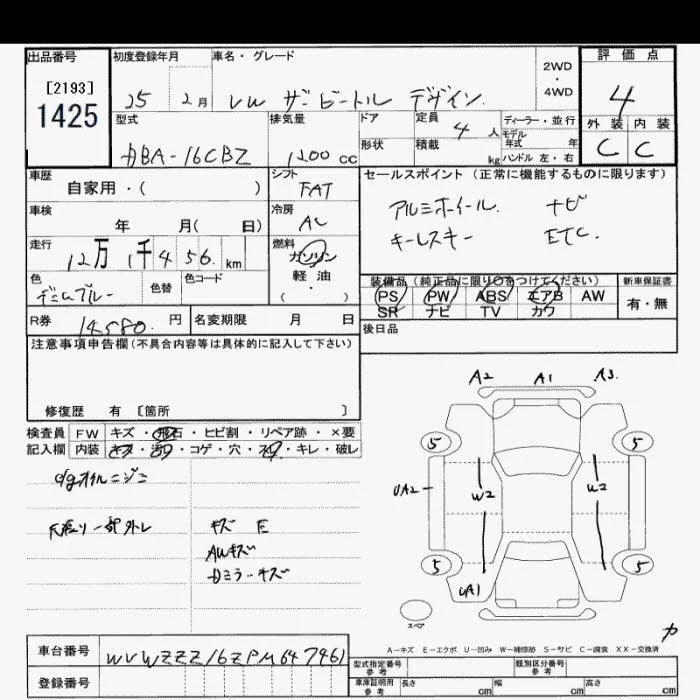 出品番号
[2193]
1425
初度登録年月
25 2月
車名・グレード
VW ザ・ビートル デザイン
2WD
・
4WD
評価点
4
外装 内装
C C
型式
DBA-16CBZ
排気量
1200 cc
ドア
形状
定員 4 人
積載 kg
ディーラー・並行
モデル年式 年
ハンドル 左・右
車歴
自家用・( )
シフト
FAT
車検
年 月( 日)
冷房
AC
走行
12万 1千 4 56 km
燃料
ガソリン
軽・油
( )
色
デニムブルー
色替
色コード
R券 14580 円
名変期限 月 日
セールスポイント (正常に機能するものに限ります)
アルミホイール. ナビ
キーレスキー ETC.
装備品 (純正品に限り○をつけてください)
新車保証書
PS PW ABS エアB AW
有・無
SR ナビ TV カワ
後日品
注意事項申告欄(不具合内容等は具体的に記入して下さい)
修復歴 有 [箇所 ]
検査員
記入欄
FW キズ・飛石・ヒビ割・リペア跡・×要
内装 キズ・汚れ・コゲ・穴・ ・キレ・破レ
オイルニジミ
一部外レ
キズ E
AWキズ
ドミラーキズ
A2 A1 A3
5 5
UA2
W2 W2
5 5
UA1
スペア
A-キズ E-エクボ U-凹み W-補修跡 S-サビ C-腐食 XX-交換済
車台番号 WVWZZZ16ZPM647461
登録番号
型式指定番号
参考
類別区分番号
参考
車庫証明用
参考
長さ cm 幅 cm 高さ cm